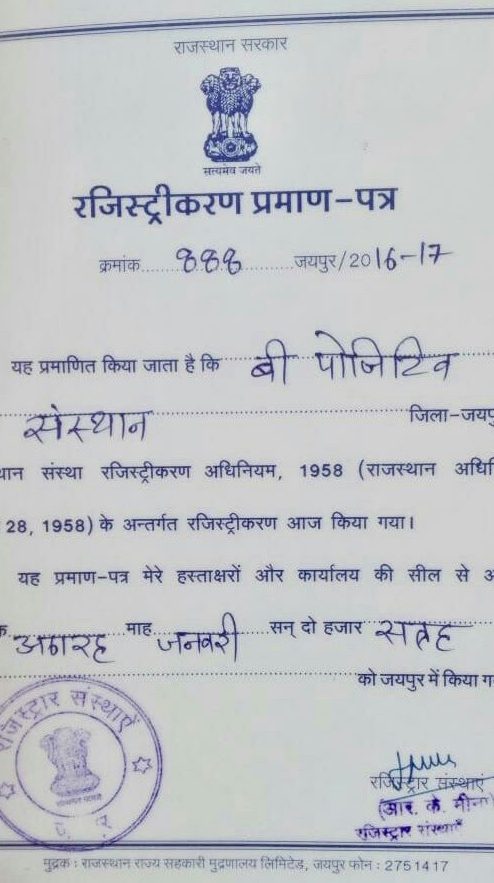 राजस्थान सरकार
सत्यमेव जयते
रजिस्ट्रीकरण प्रमाण-पत्र
क्रमांक......888......जयपुर/2016-17
यह प्रमाणित किया जाता है कि बी पोजिटिव
संस्थान जिला-जयपु
थान संस्था रजिस्ट्रीकरण अधिनियम, 1958 (राजस्थान अधिनि
28, 1958) के अन्तर्गत रजिस्ट्रीकरण आज किया गया।
यह प्रमाण-पत्र मेरे हस्ताक्षरों और कार्यालय की सील से अ
क अठारह माह जनवरी सन् दो हजार सत्रह
को जयपुर में किया ग
रजिस्ट्रार संस्थाएँ
रजिस्ट्रार संस्थाएं
(आर. के. मीना)
रजिस्ट्रार संस्थाएँ
मुद्रक : राजस्थान राज्य सहकारी मुद्रणालय लिमिटेड, जयपुर फोन : 2751417